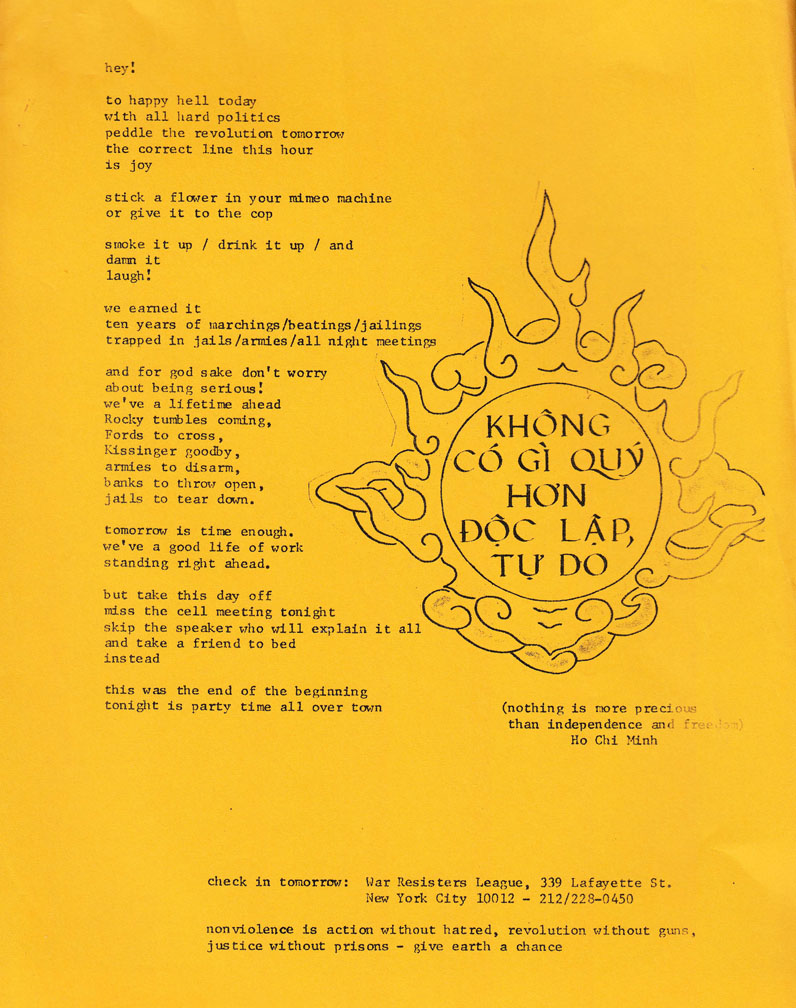 hey!
to happy hell today
with all hard politics
peddle the revolution tomorrow
the correct line this hour
is joy
stick a flower in your mimeo machine
or give it to the cop
smoke it up / drink it up / and
damn it
laugh!
we earned it
ten years of marchings/beatings/jailings
trapped in jails/armies/all night meetings
and for god sake don't worry
about being serious!
we've a lifetime ahead
Rocky tumbles coming,
Fords to cross,
Kissinger goodby,
armies to disarm,
banks to throw open,
jails to tear down.
tomorrow is time enough.
we've a good life of work
standing right ahead.
but take this day off
miss the cell meeting tonight
skip the speaker who will explain it all
and take a friend to bed
instead
this was the end of the beginning
tonight is party time all over town
KHÔNG
CÓ GÌ QUÝ
HƠN
ĐỘC LẬP,
TỰ DO
(nothing is more precious
than independence and freedom)
Ho Chi Minh
check in tomorrow: War Resisters League, 339 Lafayette St.
New York City 10012 - 212/228-0450
nonviolence is action without hatred, revolution without guns,
justice without prisons - give earth a chance